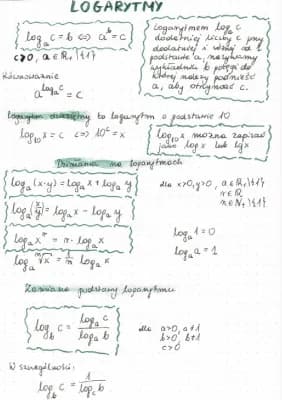 LOGARYTMY
log_a c = b ⇔ a^b = c
c>0, a∈R₊\{1}
Równoważnie
a^(log_a c) = c
Logarytmem log_a c
dodatniej liczby c przy
dodatniej i różnej od 1
podstawie a, nazywamy
wykładnik b potęgi do
której należy podnieść
a, aby otrzymać c.
Logarytm dziesiętny to logarytm o podstawie 10
log₁₀ x = c ⇔ 10^c = x
log₁₀ x można zapisać
jako log x lub lg x
Działania na logarytmach
log_a (x·y) = log_a x + log_a y
log_a (x/y) = log_a x - log_a y
log_a x^n = n · log_a x
log_a ⁿ√x = 1/n log_a x
dla x>0, y>0, a∈R₊\{1}
n∈R
n∈N₊\{1}
log_a 1 = 0
log_a a = 1
Zamiana podstawy logarytmu
log_b c = log_a c / log_a b
dla a>0, a≠1
b>0, b≠1
c>0
W szczególności:
log_b c = 1 / log_c b